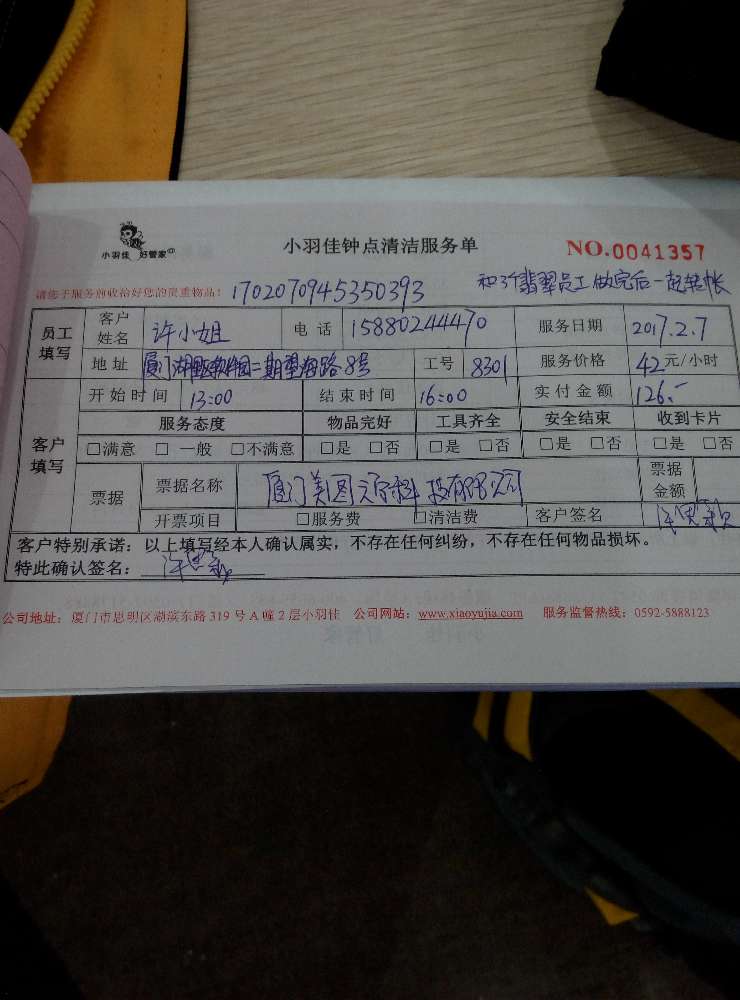 小羽佳 好管家
小羽佳钟点清洁服务单
NO.0041357
请您于服务前收拾好您的贵重物品:
1702070945350393
和3个翡翠员工做完后一起转帐
员工填写 客户姓名 许小姐 电话 15880244470 服务日期 2017.2.7
地址 厦门湖里区软件园二期望海路8号 工号 8301 服务价格 42元/小时
开始时间 13:00 结束时间 16:00 实付金额 126.-
客户填写 服务态度 物品完好 工具齐全 安全结束 收到卡片
□满意 □一般 □不满意 □是 □否 □是 □否 □是 □否 □是 □否
票据 票据名称 厦门美图 科技有限公司 票据金额
开票项目 □服务费 □清洁费 客户签名
客户特别承诺:以上填写经本人确认属实,不存在任何纠纷,不存在任何物品损坏。
特此确认签名:
公司地址:厦门市思明区湖滨东路 319 号 A 幢 2 层小羽佳 公司网站:www.xiaoyujia.com 服务监督热线:0592-5888123